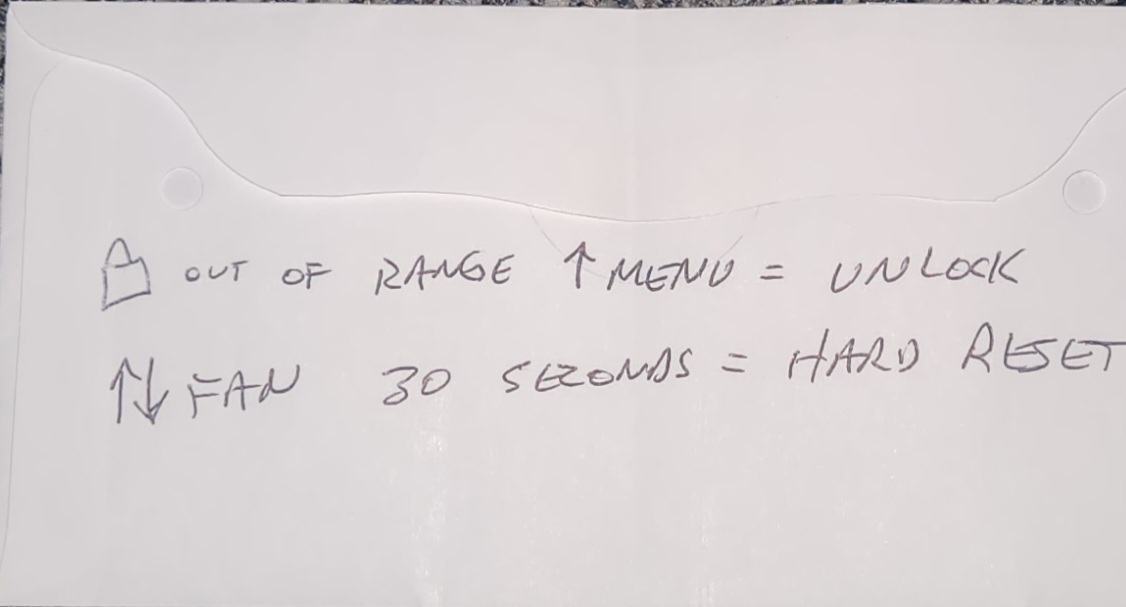 🔒 OUT OF RANGE ↑ MENU = UNLOCK
↑↓ FAN 30 SECONDS = HARD RESET